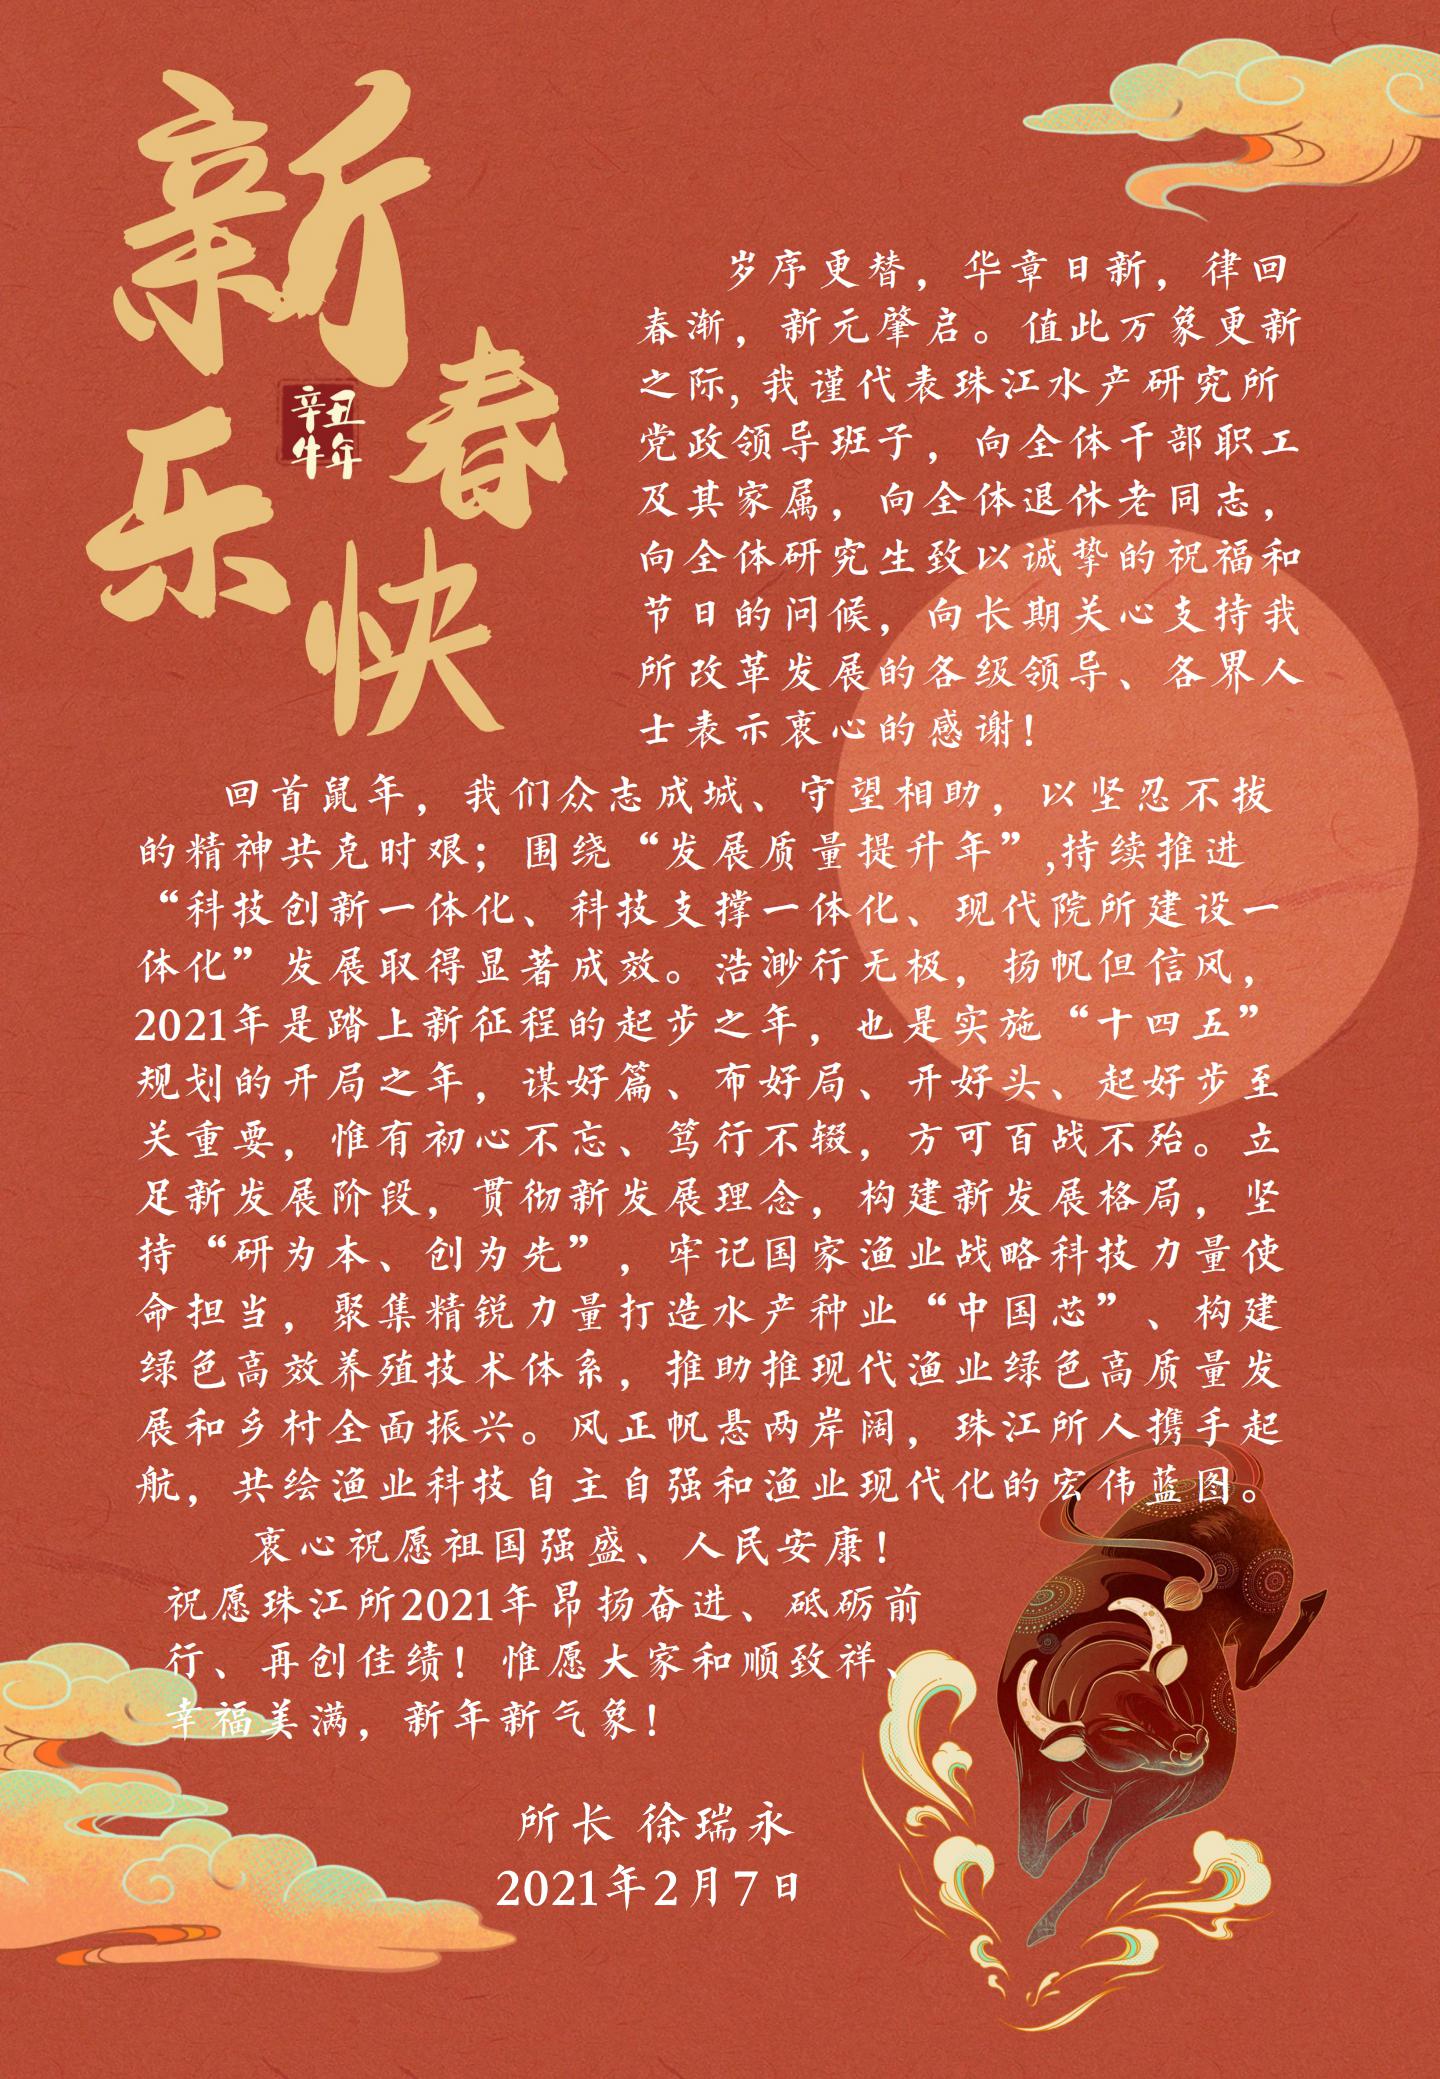 新春
快乐
辛丑
牛年
岁序更替，华章日新，律回
春渐，新元肇启。值此万象更新
之际,我谨代表珠江水产研究所
党政领导班子，向全体干部职工
及其家属，向全体退休老同志，
向全体研究生致以诚挚的祝福和
节日的问候，向长期关心支持我
所改革发展的各级领导、各界人
士表示衷心的感谢！
回首鼠年，我们众志成城、守望相助，以坚忍不拔
的精神共克时艰；围绕“发展质量提升年”,持续推进
“科技创新一体化、科技支撑一体化、现代院所建设一
体化”发展取得显著成效。浩渺行无极，扬帆但信风，
2021年是踏上新征程的起步之年，也是实施“十四五”
规划的开局之年，谋好篇、布好局、开好头、起好步至
关重要，惟有初心不忘、笃行不辍，方可百战不殆。立
足新发展阶段，贯彻新发展理念，构建新发展格局，坚
持“研为本、创为先”，牢记国家渔业战略科技力量使
命担当，聚集精锐力量打造水产种业“中国芯”、构建
绿色高效养殖技术体系，推助推现代渔业绿色高质量发
展和乡村全面振兴。风正帆悬两岸阔，珠江所人携手起
航，共绘渔业科技自主自强和渔业现代化的宏伟蓝图。
衷心祝愿祖国强盛、人民安康！
祝愿珠江所2021年昂扬奋进、砥砺前
行、再创佳绩！惟愿大家和顺致祥、
幸福美满，新年新气象！
所长 徐瑞永
2021年2月7日